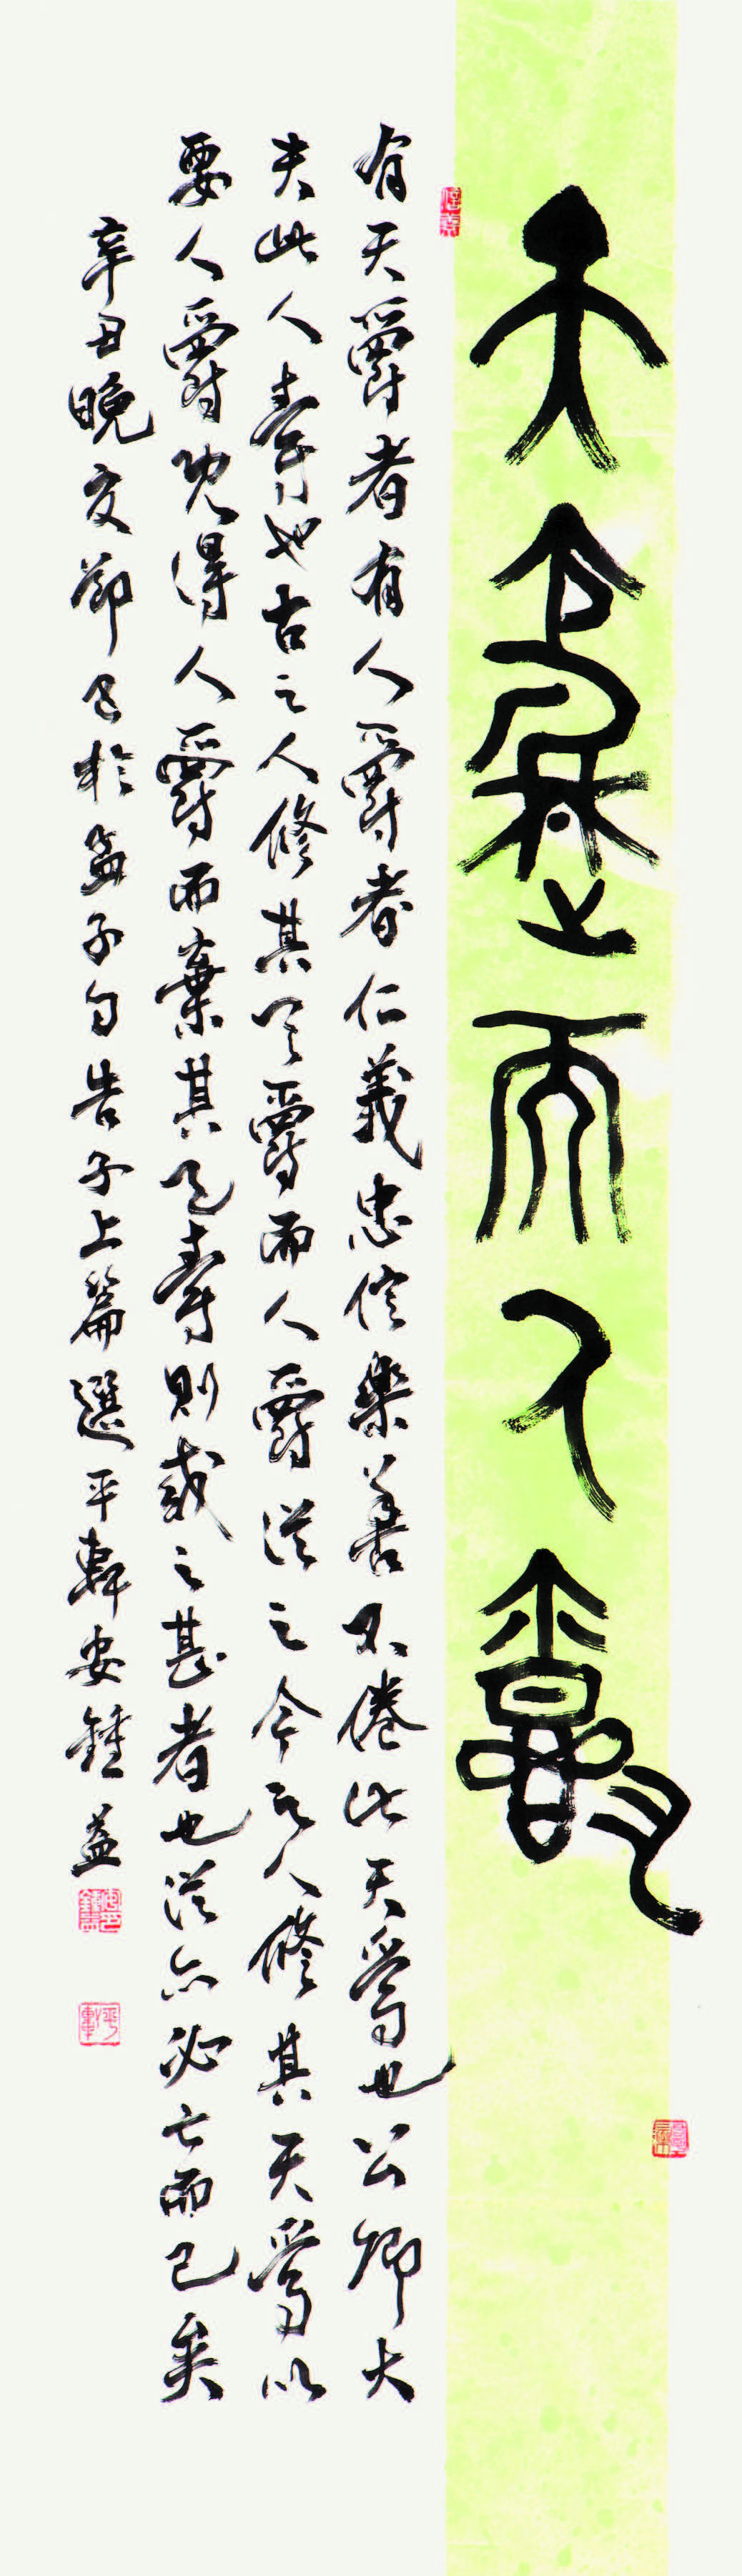 天而人
有天爵者有人爵者仁義忠信樂善不倦此天爵也公卿大
夫此人爵也古之人修其天爵而人爵從之今之人修其天爵以
要人爵既得人爵而棄其天爵則惑之甚者也終亦必亡而已矣
辛丑晚夏節於孟子句告子上篇選平軒安鍾益